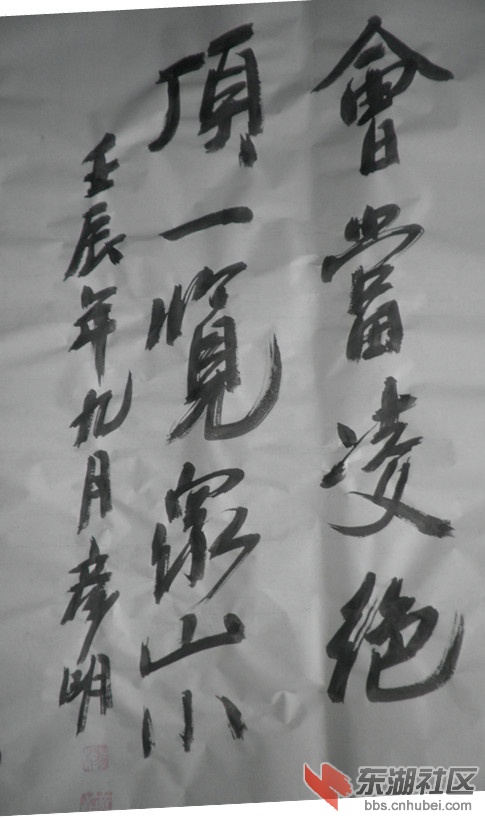 會當凌絕
頂一覽眾山小
壬辰年九月彦明
东湖社区
bbs.cnhubei.com